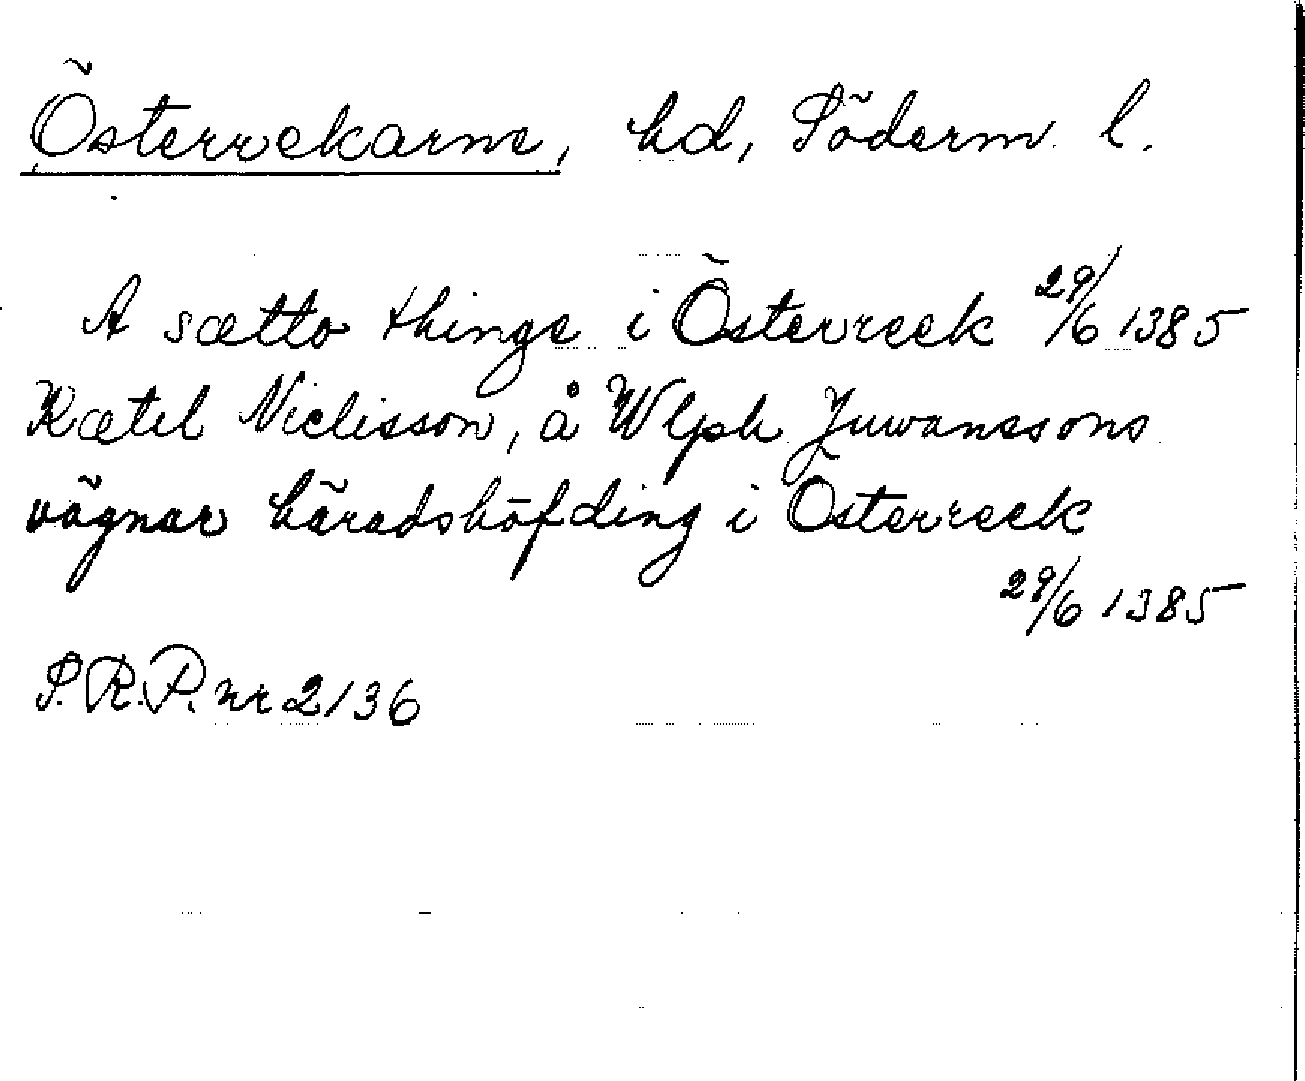 Österrekarne, hd, Söderm. l.
A sætto thinge i Österreek 29/6 1385
Kætil Niclisson, å Wlph Juwanssons
vägnar häradshöfding i Österreek
29/6 1385
S.R.P. nr 2136